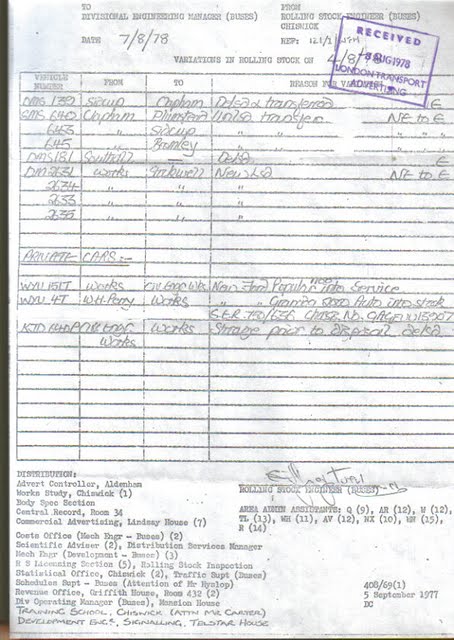 TO
DIVISIONAL ENGINEERING MANAGER (BUSES)
FROM
ROLLING STOCK ENGINEER (BUSES)
CHISWICK
DATE 7/8/78
REF: 121/1/
RECEIVED
8 AUG 1978
LONDON TRANSPORT
ADVERTISING
VARIATIONS IN ROLLING STOCK ON 4/8/78
VEHICLE NUMBER FROM TO REASON FOR
DMS 1350 Sidcup Clapham Delsd & transferred E
SMS 640 Clapham Plumstead Unlsd transfer NE to E
643 " Sidcup " " " " "
645 " Bromley " " " " "
DMS 181 Southall — Delsd. E
DM 2631 Works Stockwell New Lsd NE to E
2634 " " "
2633 " " "
2635 " " "
PRIVATE CARS:-
WYU 151T Works New Ford Popular into Service
WYU 4T W.H. Perry Works " " Granada Auto into stock
Works Storage prior to disposal
Works
DISTRIBUTION:
Advert Controller, Aldenham
Works Study, Chiswick (1)
Body Spec Section
Central Record, Room 34
Commercial Advertising, Lindsey House (7)
Costs Office (Mech Engr - Buses) (2)
Scientific Adviser (2), Distribution Services Manager
Mech Engr (Development - Buses) (3)
R S Licensing Section (5), Rolling Stock Inspection
Statistical Office, Chiswick (2), Traffic Supt (Buses)
Schedules Supt - Buses (Attention of Mr Hyslop)
Revenue Office, Griffith House, Room 432 (2)
Div Operating Manager (Buses), Mansion House
TRAINING SCHOOL, CHISWICK (ATTN MR CARTER)
DEVELOPMENT ENG'S, SIGNALLING, TELSTAR HOUSE
ROLLING STOCK ENGINEER (BUSES)
AREA ADMIN ASSISTANTS: Q (9), AR (12), W (12),
TL (13), WH (11), AV (12), NX (10), WN (15),
R (14)
408/69(1)
5 September 1977
DC